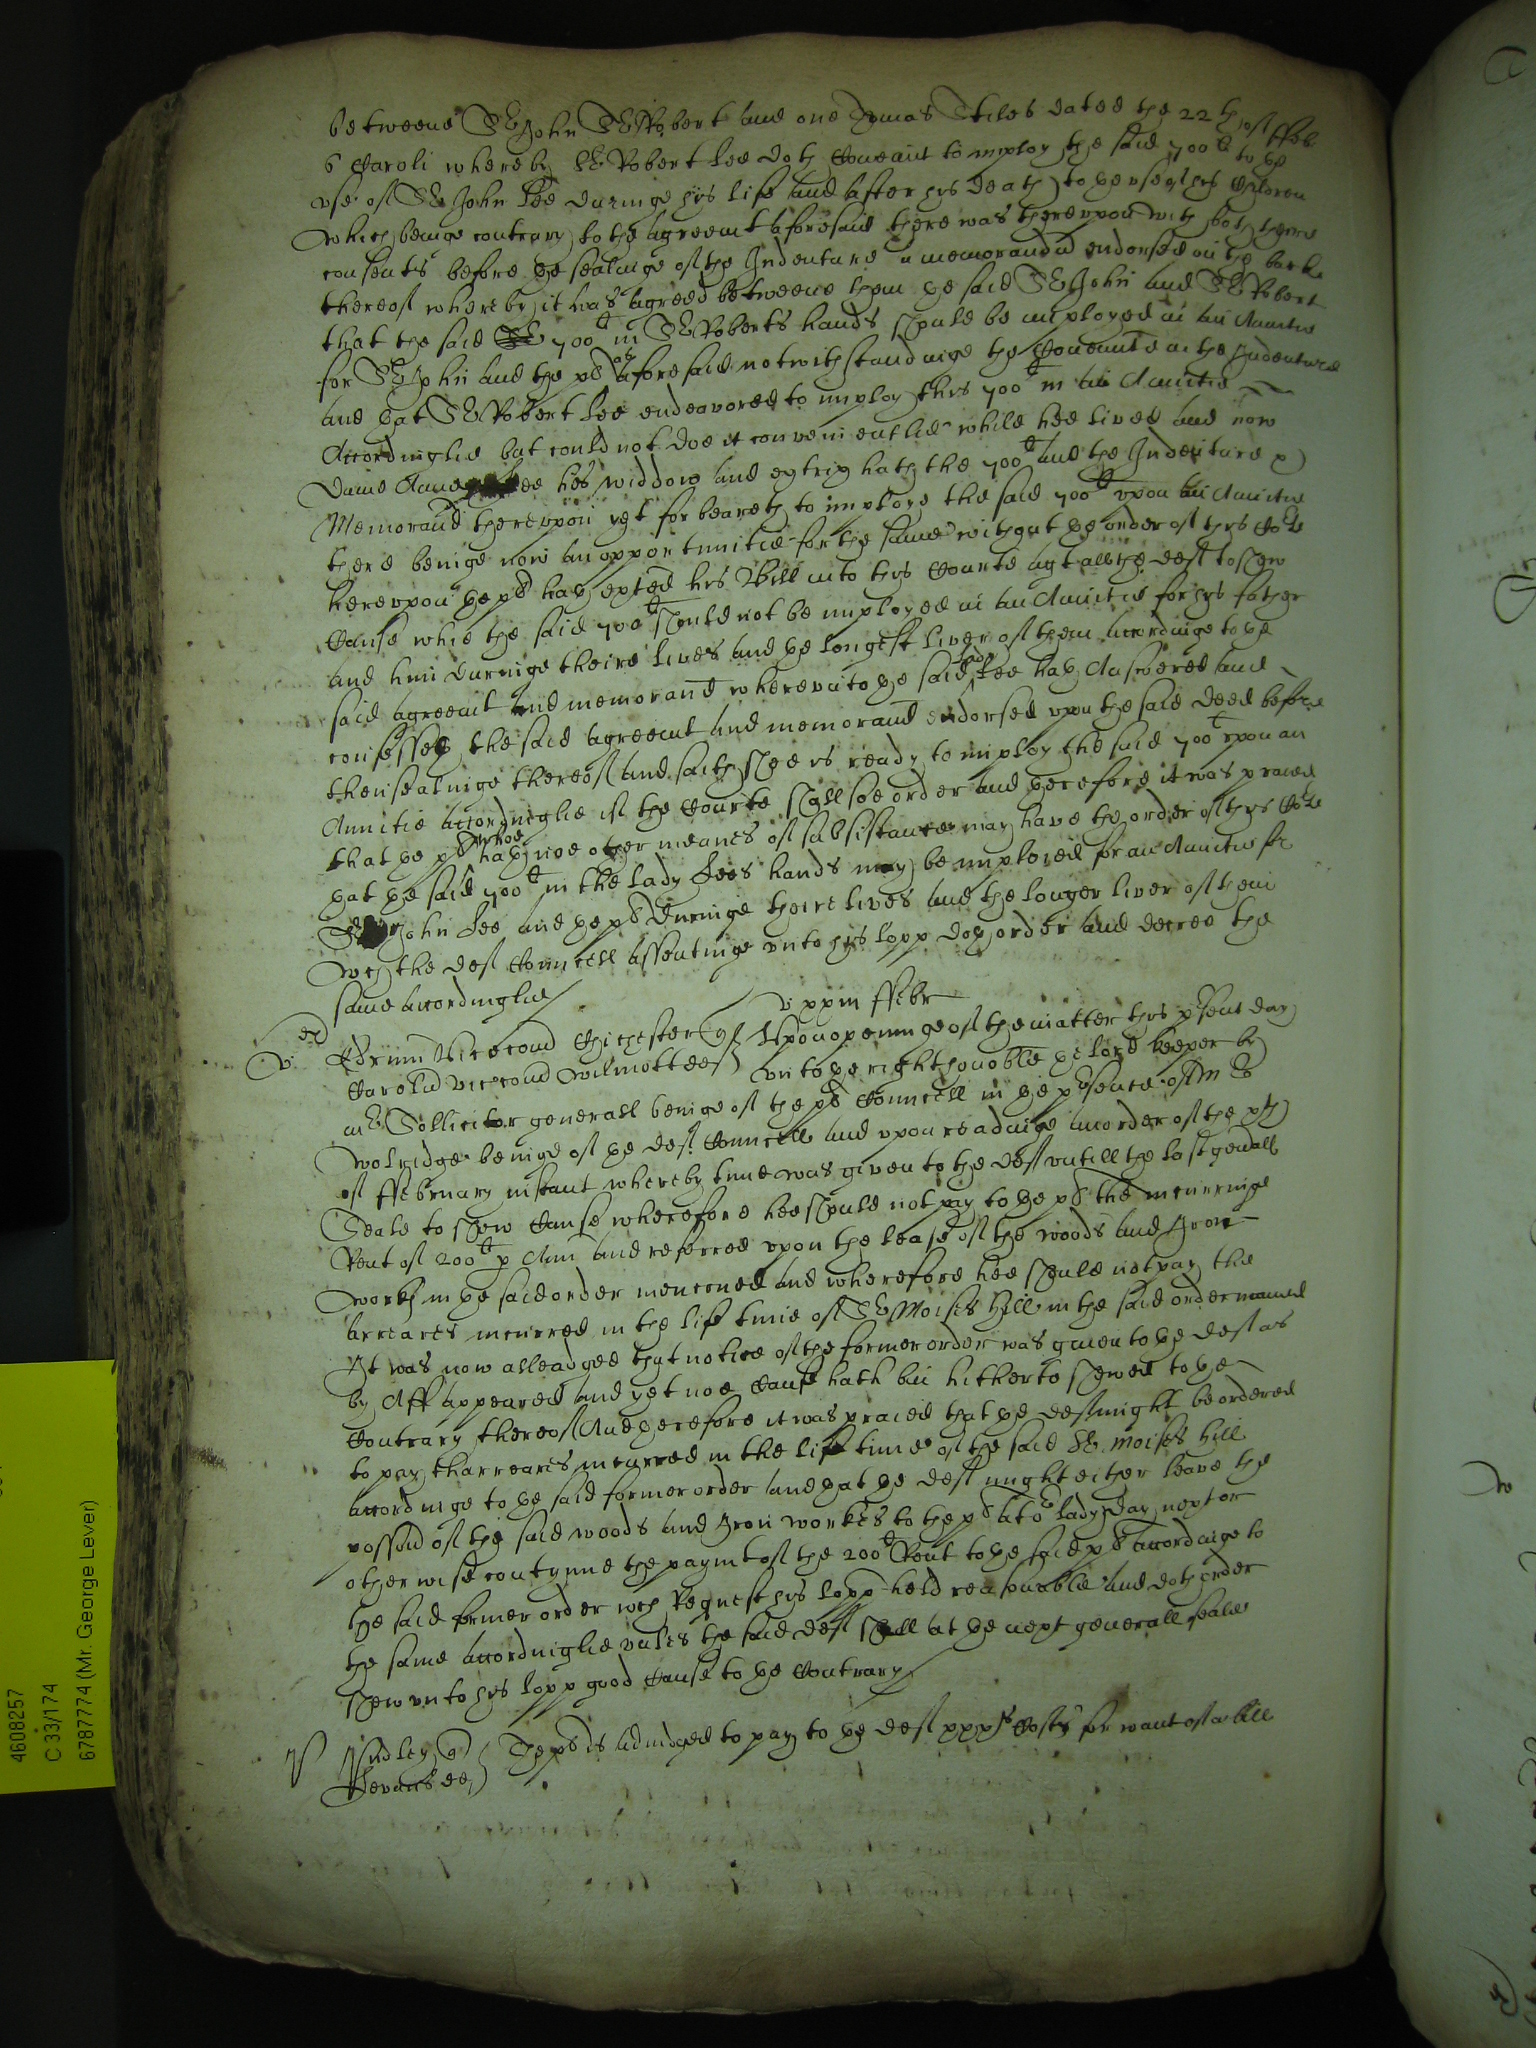 betweene Sr John Sr Robert and one Thomas Stiles dated the 22th of ffeb
6 Caroli whereby Sr Robert Lee doth Covenant to imploy the said 700li to the
use of Sr John Lee duringe his life and after his death to the use of his Children
which beinge contrary to the agreemt aforesaid there was thereupon with both theire
consents before the sealinge of the Indenture a memorandu endorsed on the backe
thereof whereby it was agreed betweene them the said Sr John and Sr Robert
that the said 700li in Sr Roberts hands should be imployed in an Annitie
for Sr John and the plt as aforesaid notwithstandinge the Covenante in the Indenture
and that Sr Robert Lee endeavored to imploy this 700li in an Annitie
Accordinglie but could not doe it convenientlie while hee lived and now
Dame Anne Lee his widdow and extrix hath the 700li and the Indenture &
Memorand thereupon yet forbeareth to imploye the said 700li upon an Annitie
there beinge now an opportunitie for the same without the order of this Cort
hereupon the plt hath exhted his Bill into this Courte agt all the deftes to shew
Cause whie the said 700li should not be imployed in an Annitie for his father
and him duringe theire lives and the longest liver of them accordinge to the
said agreemt and memorand whereunto the said Lady Lee hath Answered and
confesseth the said agreemt and memorand endorsed upon the said deed before
thensealinge thereof and saith shee is ready to imploy the said 700li upon an
Annitie accordinglie if the Courte shall soe order and therefore it was praied
that the plt whoe hath noe other meanes of subsistance may have the order of this Cort
that the said 700li in the Lady Lees hands may be imployed for an Annitie for
Sr John Lee and the plt duringe theire lives and the longer liver of them
wch the deftes Councell assentinge unto his lopp doth order and decree the
same accordinglie
v xxiii ffebr
Edrum Vicecom Chichester qs Upon openinge of the matter this psent day
Carolu vicecom Wilmott deft unto the right honoble the lord keeper by
Mr Sollicitor generall beinge of the plts Councell in the psence of Mr
Wolridge beinge of the deftes Councell and upon readinge an order of the xth
of ffebruary instant whereby time was given to the deft untill the last genall
Seale to shew Cause wherefore hee should not pay to the plt the incurringe
Rent of 200li p Ann and reserved upon the lease of the woods and Iron
works in the said order mencioned and wherefore hee should not pay the
arreares incurred in the life time of Sr Moises Hill in the said order named
It was now alleadged that notice of the former order was given to the deft as
by Aff appeared and yet noe Cause hath bin hitherto shewed to the
Contrary thereof And therefore it was praied that the deft might be ordered
to pay tharreares incurred in the life time of the said Sr Moises Hill
accordinge to the said former order and that the deft might either leave the
possion of the said woods and Iron workes to the plt at or Lady Day next or
otherwise contynue the paymt of the 200li Rent to the said plt accordinge to
the said former order wch Request his lopp held reasonable and doth order
the same accordinglie unles the said deft shall at the next generall seale
shew unto his lopp good Cause to the Contrary
Dudley qs The plt is adiudged to pay to the deft xxxs Costs for want of a bill
Bevans deft
4608257
C 33/174
6787774 (Mr. George Lever)